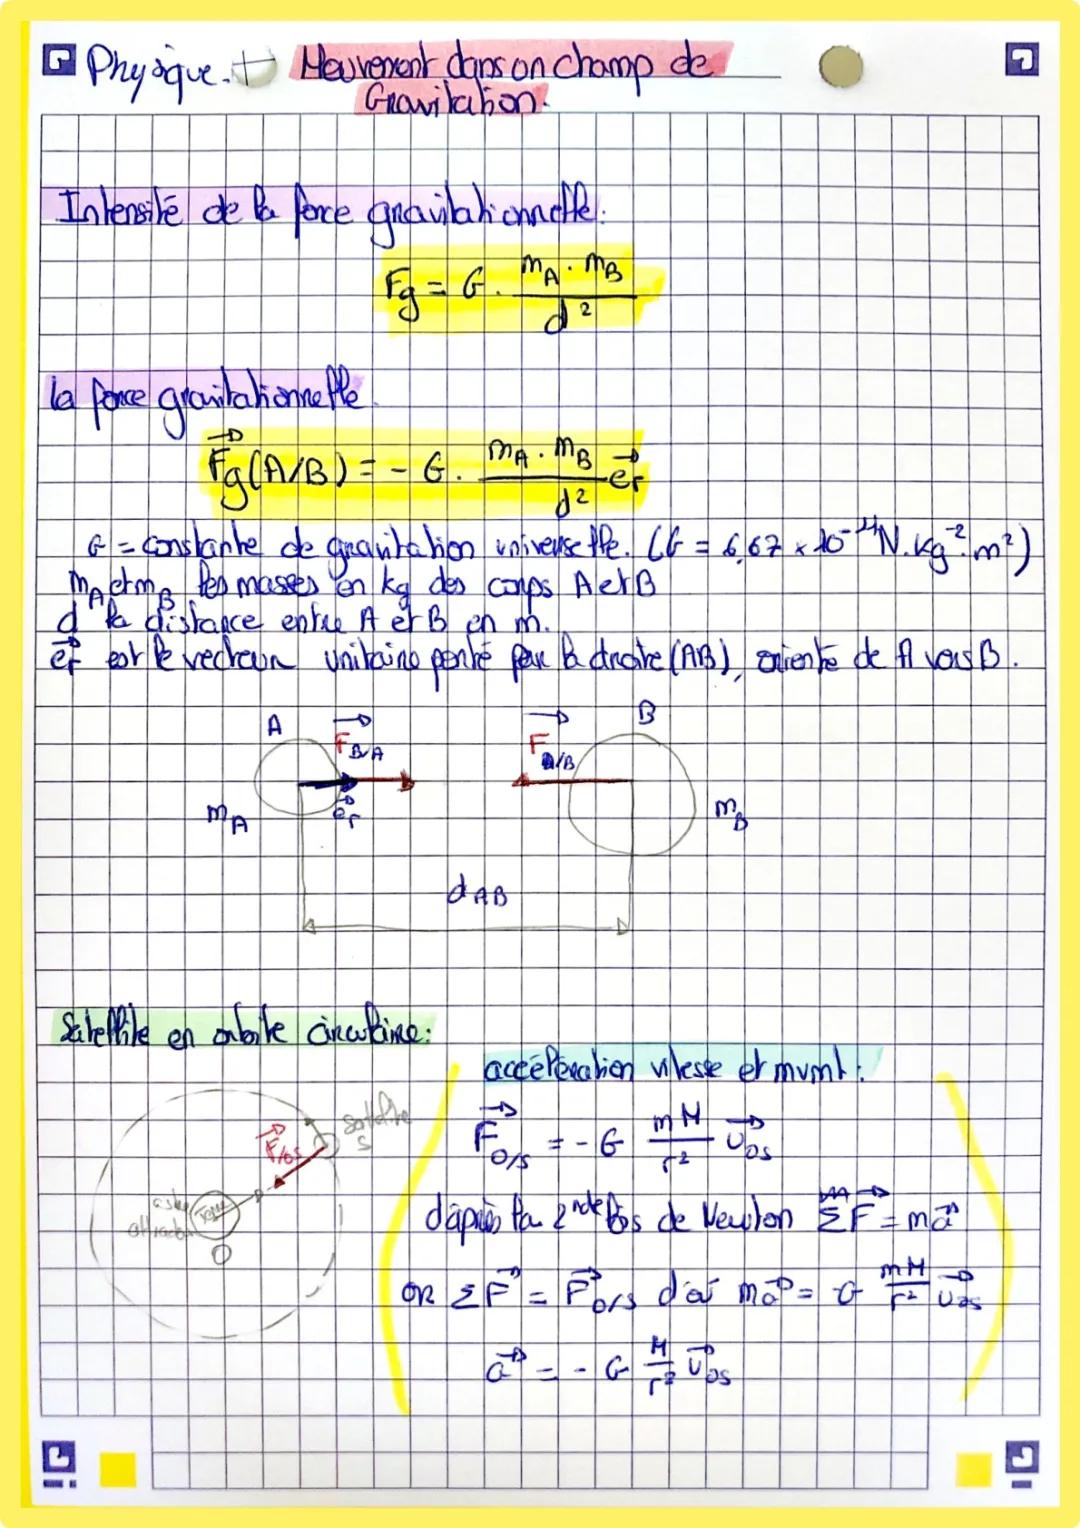 Physique. Mouvement dans un champ de
Gravitation.
Intensité de la force gravitationnelle:
Fg = G. mA . mB / d²
la force gravitationnelle.
Fg(A/B) = - G. mA . mB / d² er
G = constante de gravitation universelle. (G = 6,67 x 10⁻¹¹ N.kg⁻².m²)
mA et mB les masses en kg des corps A et B
d la distance entre A et B en m.
er est le vecteur unitaire porté par la droite (AB), orienté de A vers B.
A FB/A FA/B B
mA er mB
dAB
Satellite en orbite circulaire:
accélération vitesse et mvmt:
satellite
S
F/OS
FO/S = - G mM / r² uOS
astre
attracteur
Terre
O
d'après la 2nde lois de Newton ΣF = ma
or ΣF = FO/S d'où ma = -G mM / r² uOS
a = - G M / r² uOS